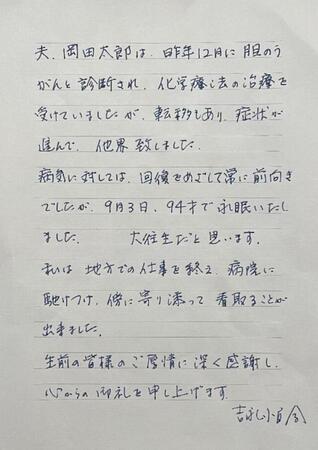 夫、岡田太郎は、昨年12月に胆のう
がんと診断され、化学療法の治療を
受けていましたが、転移もあり、症状が
進んで、他界致しました。
病気に対しては、回復をめざして常に前向き
でしたが、9月3日、94才で永眠いたし
ました。　大往生だと思います。
私は地方での仕事を終え、病院に
駆けつけ、傍に寄り添って看取ることが
出来ました。
生前の皆様のご厚情に深く感謝し、
心からの御礼を申し上げます。
吉永小百合